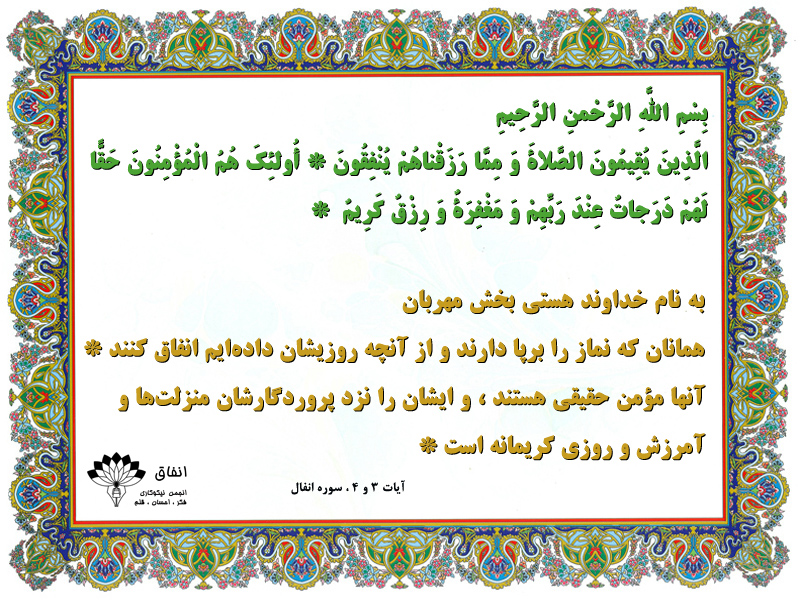 بِسْمِ اللَّهِ الرَّحْمنِ الرَّحِيمِ
الَّذِينَ يُقِيمُونَ الصَّلاةَ وَ مِمَّا رَزَقْناهُمْ يُنْفِقُونَ * أُولئِكَ هُمُ الْمُؤْمِنُونَ حَقًّا
لَهُمْ دَرَجاتٌ عِنْدَ رَبِّهِمْ وَ مَغْفِرَةٌ وَ رِزْقٌ كَرِيمٌ *
به نام خداوند هستی بخش مهربان
همانان که نماز را برپا دارند و از آنچه روزیشان داده‌ایم انفاق کنند *
آنها مؤمن حقیقی هستند ، و ایشان را نزد پروردگارشان منزلت‌ها و
آمرزش و روزی کریمانه است *
آیات ۳ و ۴ ، سوره انفال
انفاق
انجمن نیکوکاری
فکر ، احسان ، قلم